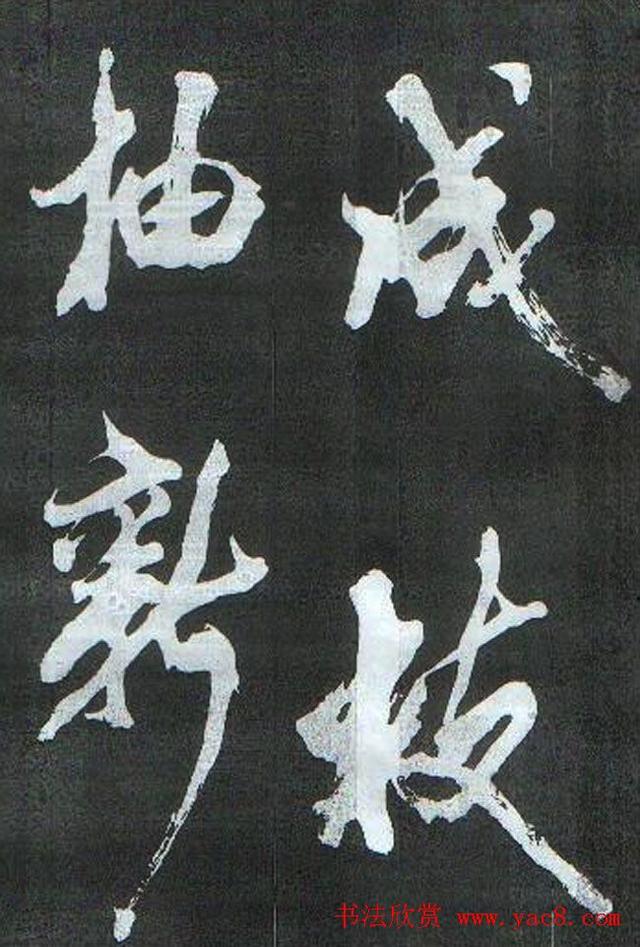 成枝
抽新
书法欣赏 www.yac8.com